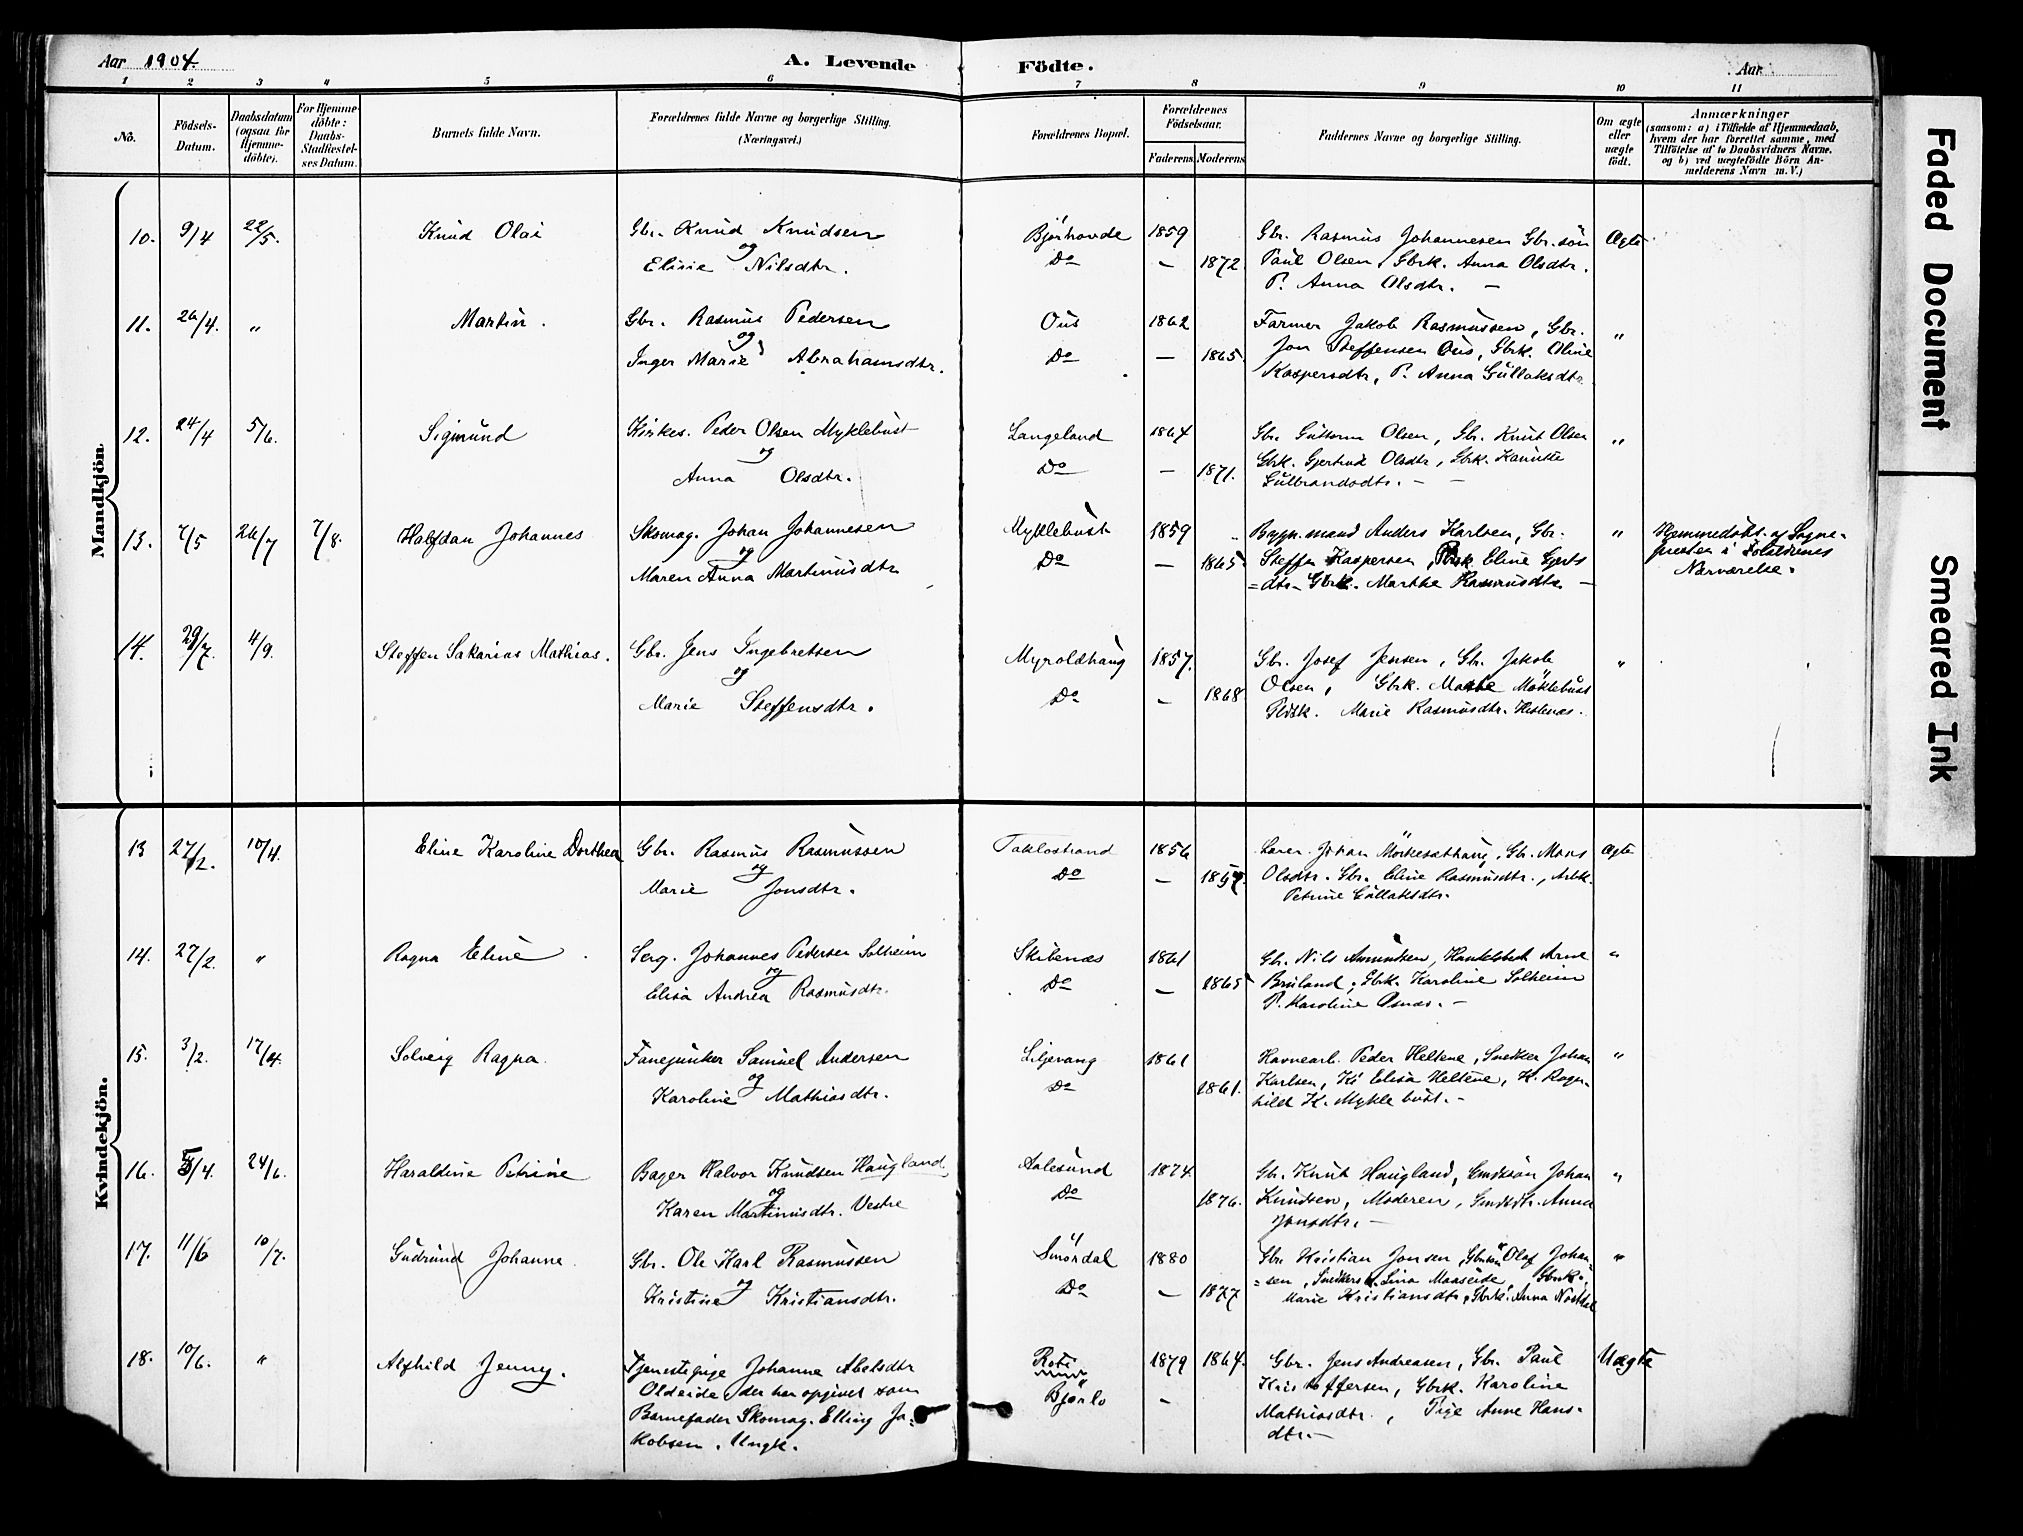 Aar 1904. A. Levende Födte. Aar
1 2 3 4 5 6 7 8 9 10 11
No. Födsels-Datum. Daabsdatum (ogsaa for Hjemme-döbte). For Hjemme-döbte: Daabs-Stadfæstel-ses Datum. Barnets fulde Navn. Forældrenes fulde Navne og borgerlige Stilling. (Næringsvei.) Forældrenes Bopæl. Forældrenes Födselsaar. Faderens Moderens Faddernes Navne og borgerlige Stilling. Om ægte eller uægte födt. Anmærkninger (saasom: a) i Tilfælde af Hjemmedaab, hvem der har forrettet samme, med Tilföielse af to Daabsvidners Navne. og b) ved uægtefödte Börn An-melderens Navn m.V.)
Mandkjön.
10. 9/4 22/5. Knud Olai Gbr. Knud Knudsen Bjørhovde 1859 Gbr. Rasmus Johannesen Gbr.søn Ægte
og
Eline Nilsdtr. Do — 1872. Paul Olsen, Gbrk. Anna Olsdtr.
P. Anna Olsdtr. —
11. 26/4. " Martin. Gbr. Rasmus Pedersen Ous 1862 Farmer Jakob Rasmussen, Gbr. "
og
Inger Marie Abrahamsdtr. Do — 1865. Jon Steffensen Ous, Gbrk. Oline
Kaspersdtr, P. Anna Gullaksdtr
12. 24/4 5/6. Sigmund Kirkes. Peder Olsen Myklebust Langeland 1864 Gbr. Guttorm Olsen, Gbr. Knut Olsen "
og
Anna Olsdtr. Do — 1871. Gbrk. Gjertrud Olsdtr, Gbrk.
Gulbrandsdtr. — —
13. 7/5 26/7 7/8. Halfdan Johannes Skomag. Johan Johannesen Myklebust 1859 Bygn.mand Anders Karlsen, Gbr. " Hjemmedøbt af Sogne-
og
Maren Anna Martinusdtr Do — 1865 Steffen Kaspersen, Eline Gjerts præsten i Forældrenes
=dtr. Gbrk. Marthe Rasmusdtr. — Nærværelse.
14. 29/7. 4/9. Steffen Sakarias Mathias. Gbr. Jens Ingebretsen Myroldhaug 1857. Gbr. Josef Jensen, Gbr. Jakob "
og
Marie Steffensdtr. Do — 1868 Olsen, Gbrk. Marthe Möklebust
Marie Rasmusdtr. Hestenæs.
Kvindekjön.
13 27/2. 10/4. Eline Karoline Dorthea Gbr. Rasmus Rasmussen Taklostrand 1856 Lærer. Johan Mörkesæthaug, Gbr. Mons Ægte
og
Marie Jonsdtr. Do — 1857. Olsdtr. Gbr. Eline Rasmusdtr., Arbk.
Petrine Gullaksdtr.
14. 27/2. " Ragna Eline Serg. Johannes Pedersen Solheim Skibenæs 1861 Gbr. Nils Asmundsen, Handelsbet Arne "
og
Elisa Andrea Rasmusdtr. Do — 1865 Bruland, Gbrk. Karoline Solheim
P. Karoline Osnæs. —
15. 3/2. 17/4. Solveig Ragna Fanejunker Samuel Andersen Liljevang 1861 Havnearb. Peder Heltene, Snedker Johan "
og
Karoline Mathiasdtr. Do 1861. Karlsen, K. Elisa Heltene, K. Ragn-
hild K. Myklebust. —
16. 5/4. 24/6. Haraldine Petrine Bager Halvor Knudsen Haugland Aalesund 1874. Gbr. Knut Haugland, Gmdssøn Johan "
og
Karen Martinusdtr. Vestre Do 1876. Knudsen, Moderen, Gmdsdtr. Anna
Jonsdtr. —
17. 11/6 10/7. Gudrund Johanne Gbr. Ole Karl Rasmussen Smørdal 1880 Gbr. Kristian Jonsen, Gbrsøn Olaf Johan- "
og
Kristine Kristiansdtr. Do — 1877 =sen, Snedkersk. Lina Maaseide, Gbrk.
Marie Kristiansdtr, Gbrk. Anna Nordal
18. 10/6. " Alfhild Jenny. Tjenestepige Johanne Abelsdtr Roti 1879 1864. Gbr. Jens Andreasen, Gbr. Paul Uægte
Oldeide, der har opgivet som Bjørlo — Kristoffersen, Gbrk. Karoline
Barnefader Skomag. Elling Ja- Mathiasdtr., Pige Anne Hans-
kobsen. Ungk. dtr. —
Faded Document
Smeared Ink